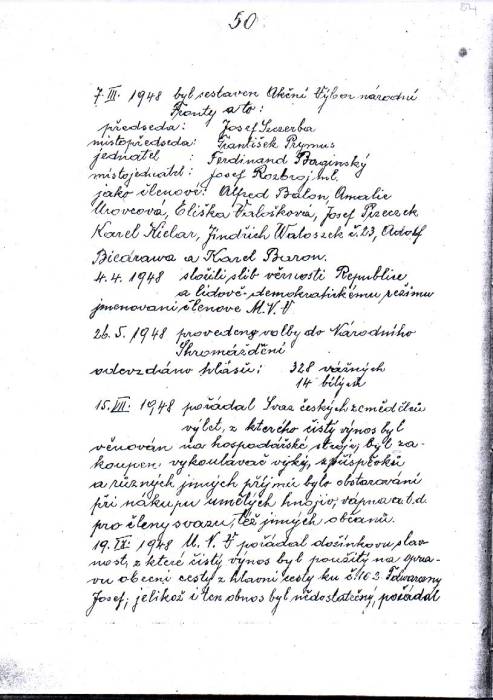 50
7. III. 1948 byl sestaven Akční Výbor národní
Fronty a to:
předseda: Josef Szczerba
místopředseda: František Prymus
jednatel: Ferdinand Baginský
místojednatel: Josef Rozbroj ml.
jako členové: Alfred Balon, Amalie
Urovcová, Eliška Valošková, Josef Pszeczek
Karel Kielar, Jindřich Waloszek č. 23, Adolf
Biedrawa a Karel Buron.
4. 4. 1948 složili slib věrnosti Republice
a lidově-demokratickému režimu
jmenovaní členove M. N. V
26. 5. 1948 provedeny volby do Národního
Shromáždění
odevzdáno hlasů: 328 vážných
14 bílých
15. VIII. 1948 pořádal Svaz českých zemědělců
výlet, z kterého čistý výnos byl
věnován na hospodářské stroje; byl za-
koupen vykoulávač výký, z příspěvků
a různých jiných příjmů bylo obstarávání
při nákupu umělých hnojiv, vápna a t. d.
pro členy svazu, též jiných občanů.
19. IX. 1948 M. N. V pořádal dožínkovu slav-
nost, z které čistý výnos byl použitý na opra-
vu obecní cesty z hlavní cesty ku č. 162
Josef, jelikož i ten obnos byl nedostatečný, pořádal